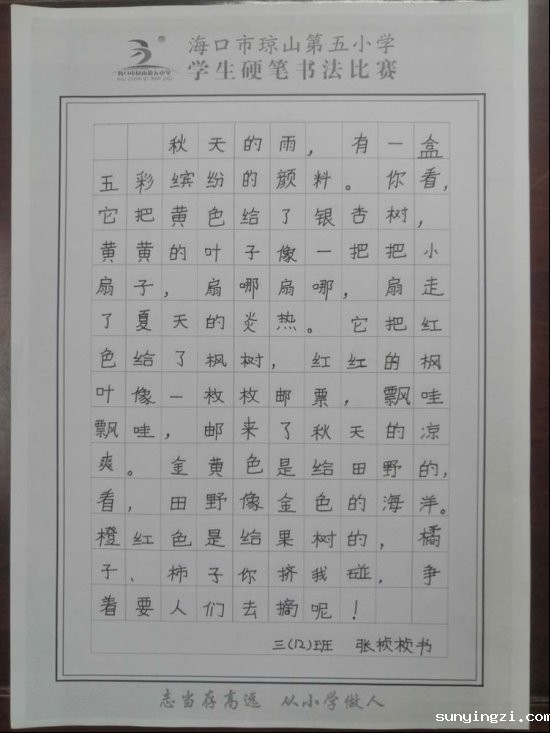 海口市琼山第五小学
学生硬笔书法比赛
秋天的雨，有一盒
五彩缤纷的颜料。你看，
它把黄色给了银杏树，
黄黄的叶子像一把把小
扇子，扇哪扇哪，扇走
了夏天的炎热。它把红
色给了枫树，红红的枫
叶像一枚枚邮票，飘哇
飘哇，邮来了秋天的凉
爽。金黄色是给田野的，
看，田野像金色的海洋。
橙红色是给果树的，橘
子、柿子你挤我碰，争
着要人们去摘呢！
三(12)班 张桢桢书
志当存高远 从小学做人
sunyingzi.com